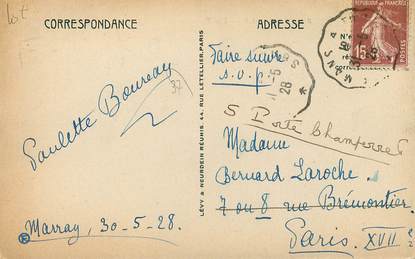 lot
CORRESPONDANCE
ADRESSE
Faire suivre
s.v.p
32
Paulette Boureau
5 Porte Champerret
Madame
Bernard Laroche
7 ou 8 rue Brémontier
Paris. XVII e
Marray, 30-5-28.
LÉVY & NEURDEIN RÉUNIS. 44, RUE LETELLIER, PARIS
RÉPUBLIQUE FRANÇAISE
15
POSTES
28